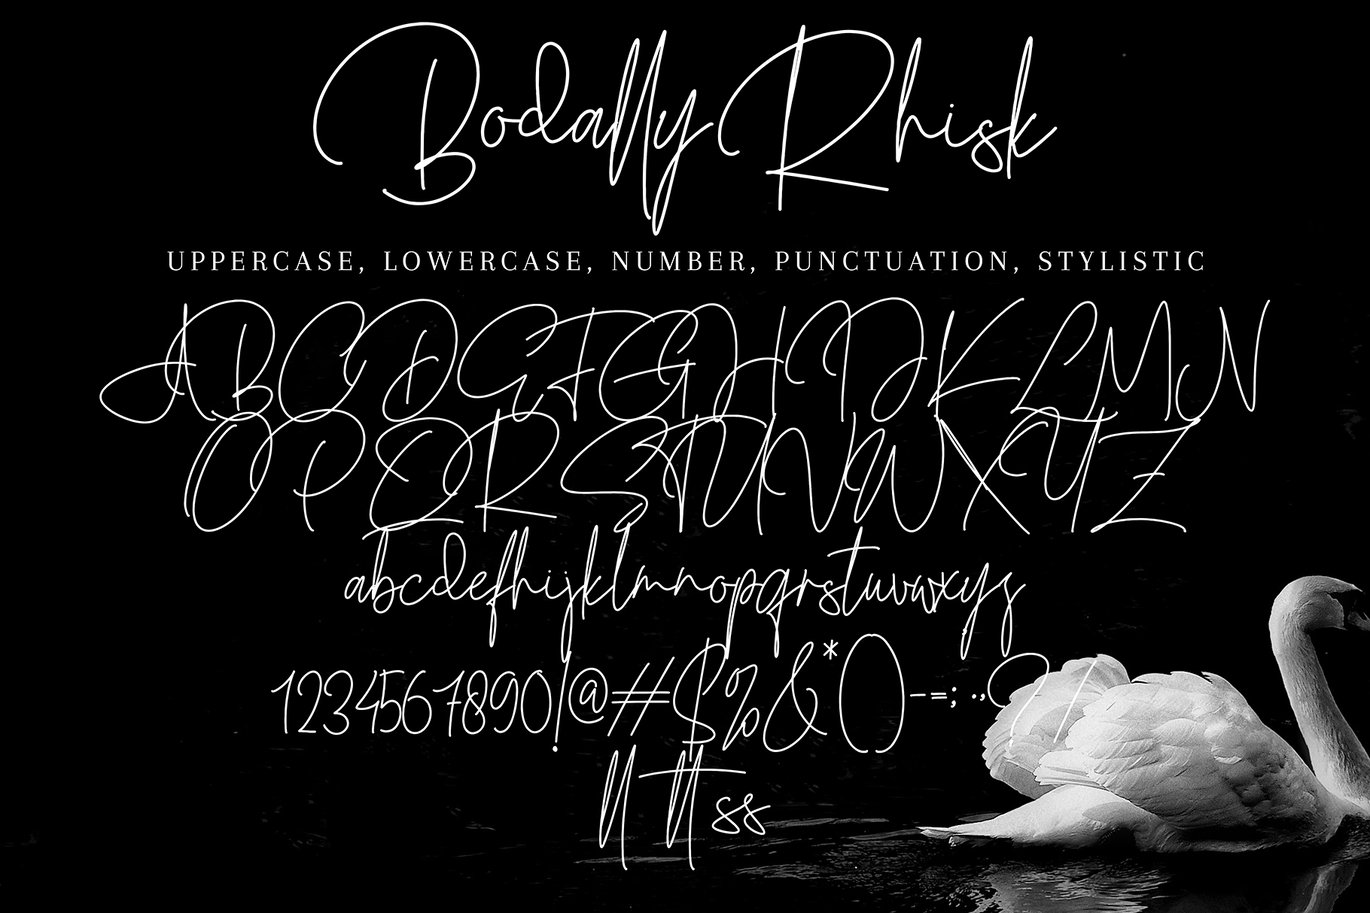 Bodally Rhisk
UPPERCASE, LOWERCASE, NUMBER, PUNCTUATION, STYLISTIC
ABCDEFGHIJKLMN
OPQRSTUVWXYZ
abcdefhijklmnopqrstuvwxyz
1234567890!@#$%&*()-=;.,?/
ll tt ss